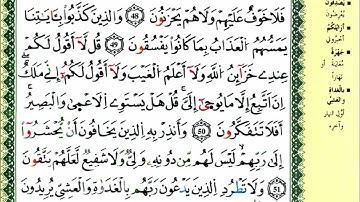 فَلَا خَوْفٌ عَلَيْهِمْ وَلَا هُمْ يَحْزَنُونَ ٤٨ وَالَّذِينَ كَذَّبُوا بِآيَاتِنَا
يَمَسُّهُمُ الْعَذَابُ بِمَا كَانُوا يَفْسُقُونَ ٤٩ قُل لَّا أَقُولُ لَكُمْ
عِندِي خَزَائِنُ اللَّهِ وَلَا أَعْلَمُ الْغَيْبَ وَلَا أَقُولُ لَكُمْ إِنِّي مَلَكٌ
إِنْ أَتَّبِعُ إِلَّا مَا يُوحَىٰ إِلَيَّ قُلْ هَلْ يَسْتَوِي الْأَعْمَىٰ وَالْبَصِيرُ
أَفَلَا تَتَفَكَّرُونَ ٥٠ وَأَنذِرْ بِهِ الَّذِينَ يَخَافُونَ أَن يُحْشَرُوا
إِلَىٰ رَبِّهِمْ لَيْسَ لَهُم مِّن دُونِهِ وَلِيٌّ وَلَا شَفِيعٌ لَّعَلَّهُمْ يَتَّقُونَ
٥١ وَلَا تَطْرُدِ الَّذِينَ يَدْعُونَ رَبَّهُم بِالْغَدَاةِ وَالْعَشِيِّ يُرِيدُونَ
يَصْدِفُونَ
يُعْرِضُونَ
أَرَأَيْتَكُمْ
أَخْبِرُونِي
جَهْرَةً
مُعَايَنَةً
أَوْ نَهَارًا
بِالْغَدَاةِ
وَالْعَشِيِّ
أَوَّلَ النَّهَارِ
وَآخِرَهُ